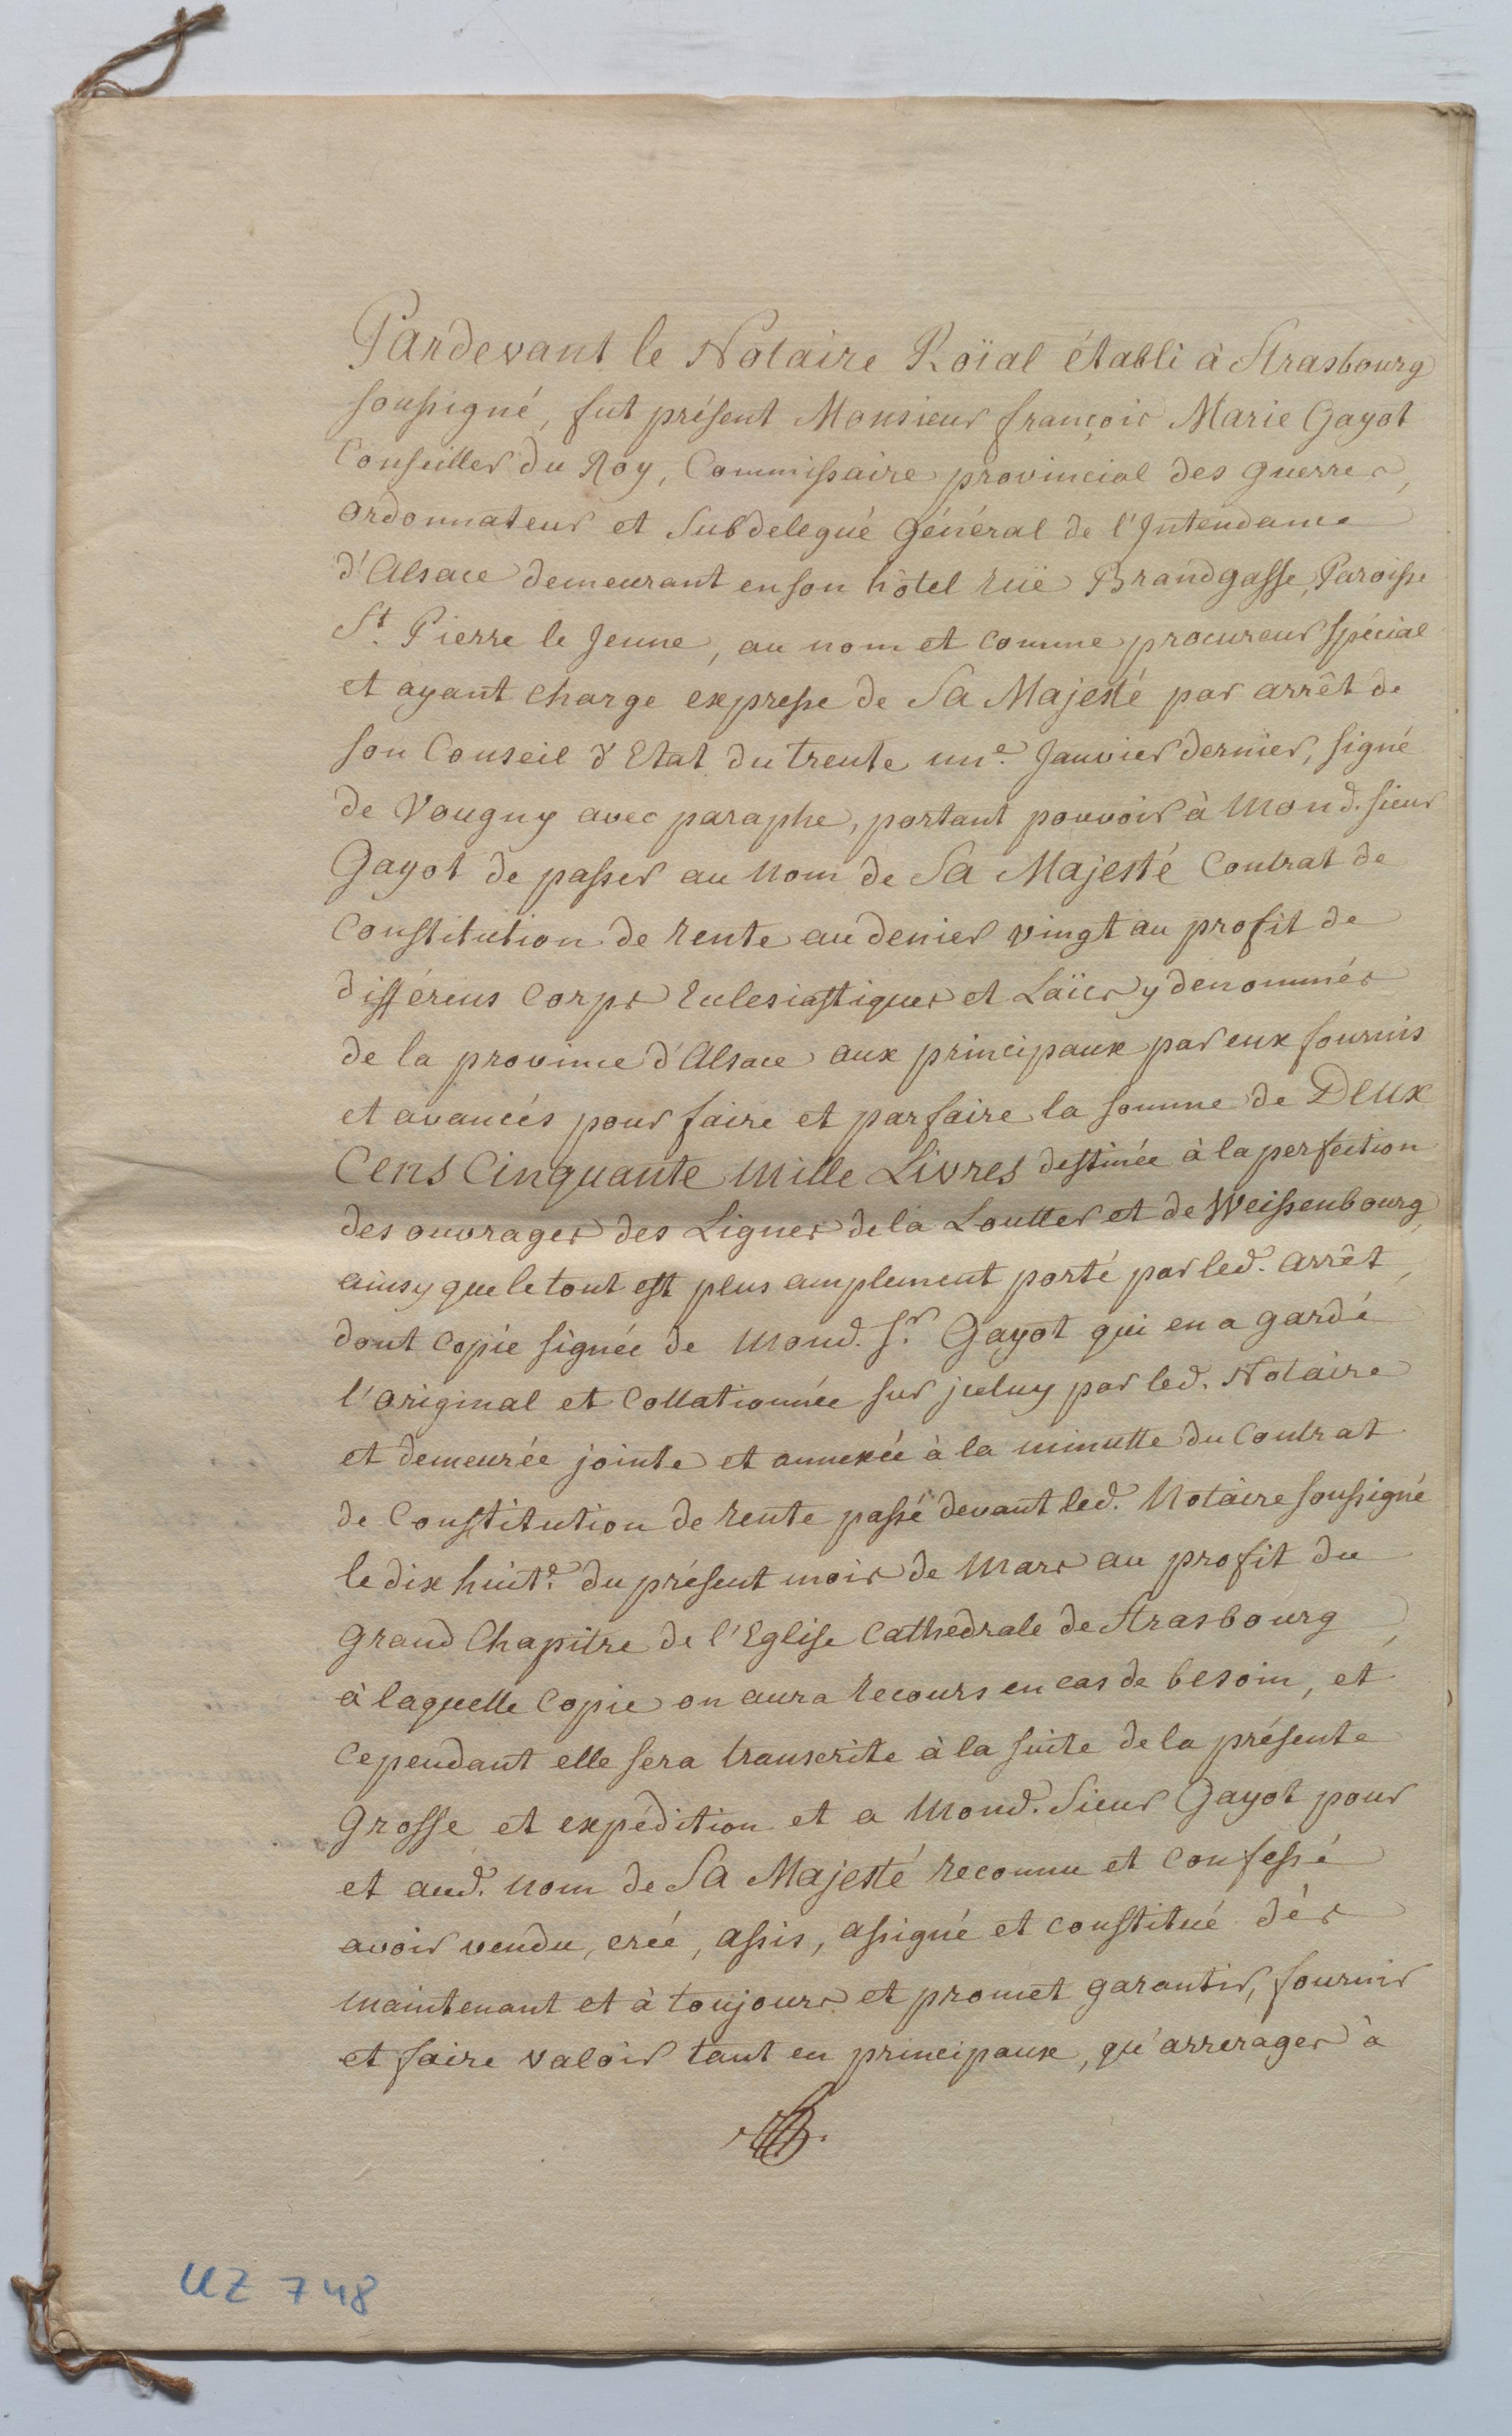 Pardevant le Notaire Roïal établi à Strasbourg
soussigné, fut présent Monsieur françois Marie Gayot
Conseiller du Roy, Commissaire provincial des guerres,
ordonnateur et Subdelegué Général de l'Intendance
d'Alsace demeurant en son hôtel ruë Brandgasse, Paroisse
St. Pierre le Jeune, au nom et comme procureur spécial
et ayant charge expresse de Sa Majesté par arrêt de
son Conseil d'Etat du trente un.e Janvier dernier, signé
de Vougny avec paraphe, portant pouvoir à Mond. sieur
Gayot de passer au Nom de Sa Majesté Contrat de
Constitution de rente au denier vingt au profit de
différens Corps Eclesiastiques et Laïcs y denommés
de la province d'Alsace aux principaux par eux fournis
et avancés pour faire et parfaire la somme de Deux
Cens Cinquante Mille Livres destinée à la perfection
des ouvrages des Lignes de la Loutter et de Weissenbourg,
ainsy que le tout est plus amplement porté par led. arrêt,
dont copie signée de Mond. Sr. Gayot qui en a gardé
l'original et Collationnée sur jceluy par led. Notaire
et demeurée jointe et annexée à la minutte du Contrat
de Constitution de rente passé devant led. Notaire soussigné
le dix huit.e du présent mois de Mars au profit du
Grand Chapitre de l'Eglise Cathedrale de Strasbourg,
à laquelle Copie on aura recours en cas de besoin, et
Cependant elle sera transcrite à la suite de la présente
Grosse et expédition et a Mond. Sieur Gayot pour
et aud. Nom de Sa Majesté reconnu et confessé
avoir vendu, creé, assis, assigné et constitué dés
maintenant et à toujours et promet garantir, fournir
et faire valoir tant en principaux, qu'arrerages à
UZ 748